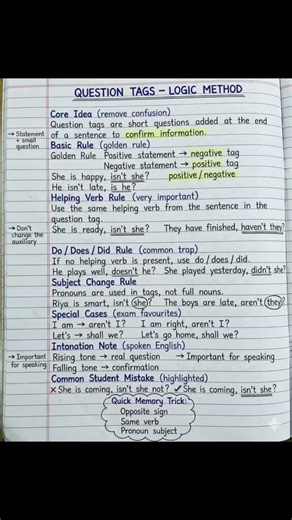 QUESTION TAGS – LOGIC METHOD
Core Idea (remove confusion)
Question tags are short questions added at the end
of a sentence to confirm information.
→ Statement
+ small
question
Basic Rule (golden rule)
Golden Rule Positive statement → negative tag
Negative statement → positive tag
She is happy, isn't she? positive/negative
He isn't late, is he?
Helping Verb Rule (very important)
Use the same helping verb from the sentence in the
question tag.
→ Don't
change the
auxiliary
She is ready, isn't she? They have finished, haven't they?
Do / Does / Did Rule (common trap)
If no helping verb is present, use do / does / did.
He plays well, doesn't he? She played yesterday, didn't she?
Subject Change Rule
Pronouns are used in tags, not full nouns.
Riya is smart, isn't she? The boys are late, aren't they?
Special Cases (exam favourites)
I am → aren't I? I am right, aren't I?
Let's → shall we? Let's go home, shall we?
Intonation Note (spoken English)
→ Important
for speaking
Rising tone → real question → Important for speaking
Falling tone → confirmation
Common Student Mistake (highlighted)
✗ She is coming, isn't she not? ✓ She is coming, isn't she?
Quick Memory Trick:
Opposite sign
Same verb
Pronoun subject